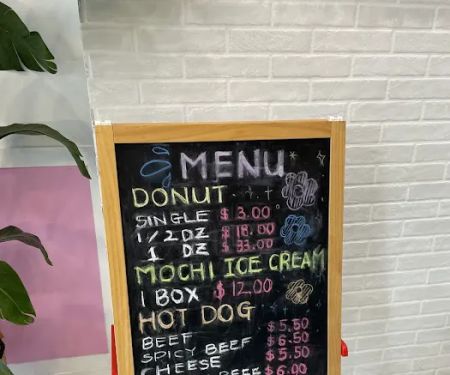 MENU
DONUT
SINGLE $3.00
1/2 DZ $18.00
1 DZ $33.00
MOCHI ICE CREAM
1 BOX $12.00
HOT DOG
BEEF $5.50
SPICY BEEF $6.50
CHEESE $5.50
BEEF $6.00